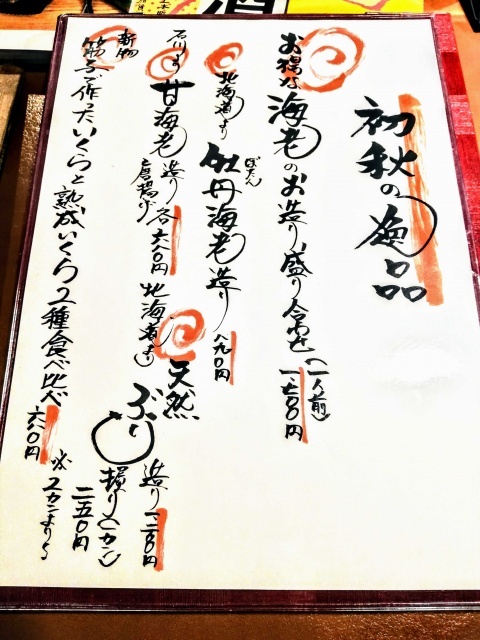 初秋の逸品
お得な海老のお造り盛り合わせ(一人前)
一七〇〇円
北海道より
ぼたん
牡丹海老造り
八九〇円
石川より
甘海老 造り
唐揚げ 各
六八〇円
北海道より
天然
ぶり
造り 一二八〇円
握り(一カン)
二五〇円
※2カンより
新物
筋子で作ったいくらと熟成いくら2種食べ比べ
六八〇円
酒